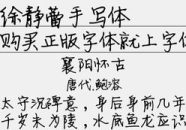 徐静蕾手写体
购买正版字体就上字体
襄阳怀古
唐代.鲍溶
太守沉碑意，身后身前几年
千岁未为陵，水底鱼龙应识